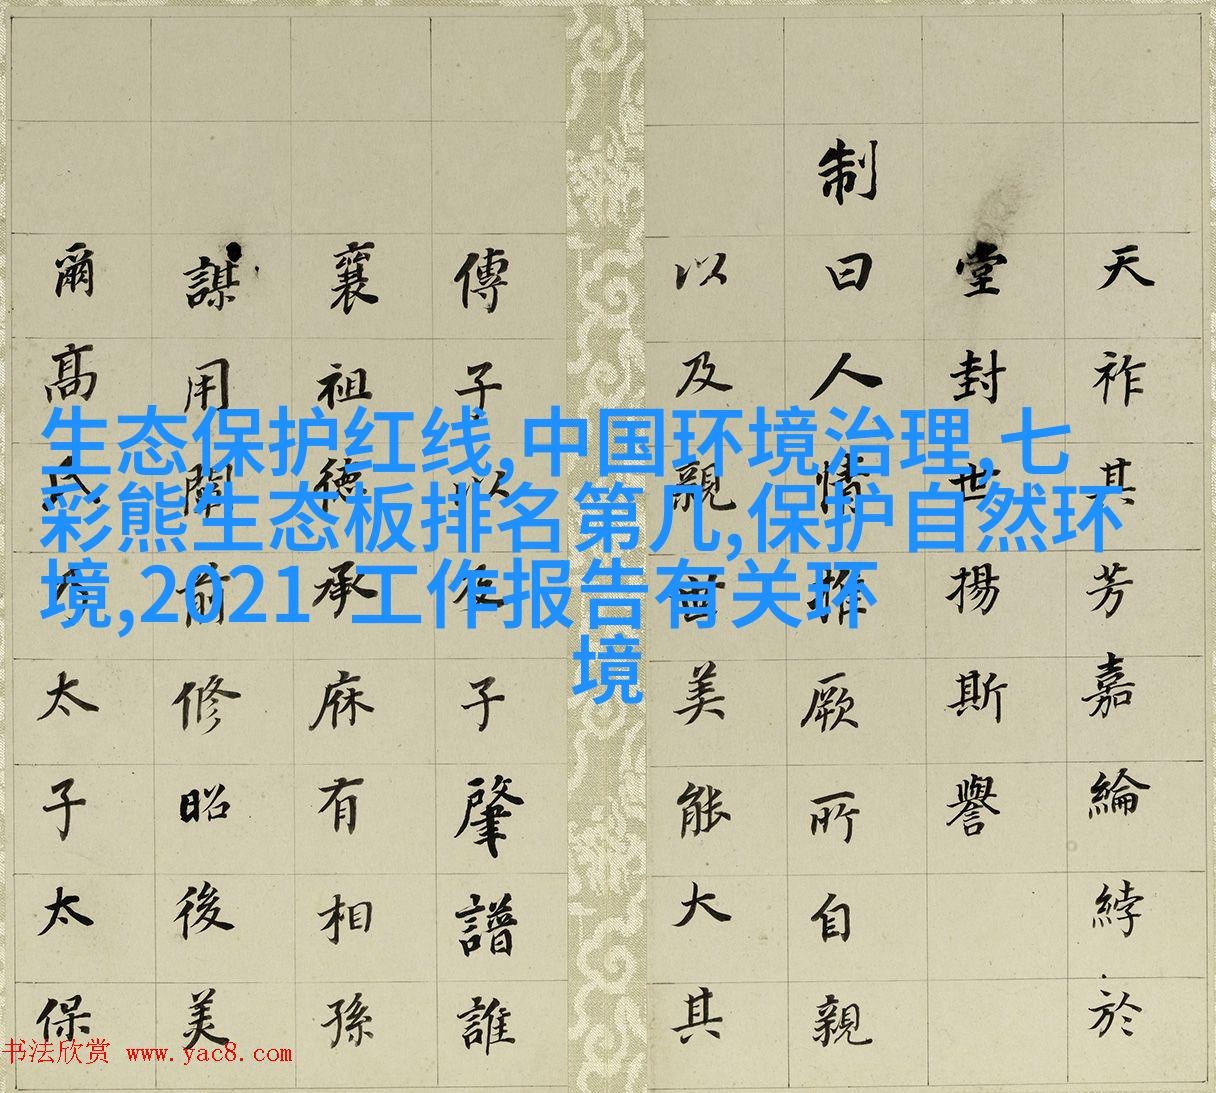 生态保护红线,中国环境治理,七
彩熊生态板排名第几,保护自然环
境,2021 工作报告有关环
境
天祚其芳嘉綸綍於
堂封世揚斯譽
制曰人情推厥所自親
以及親美能大其
傳子以及子肇譜誰
襄祖德承庥有相孫
謀用開前修昭後美
爾高氏太子太保
书法欣赏 www.yac8.com